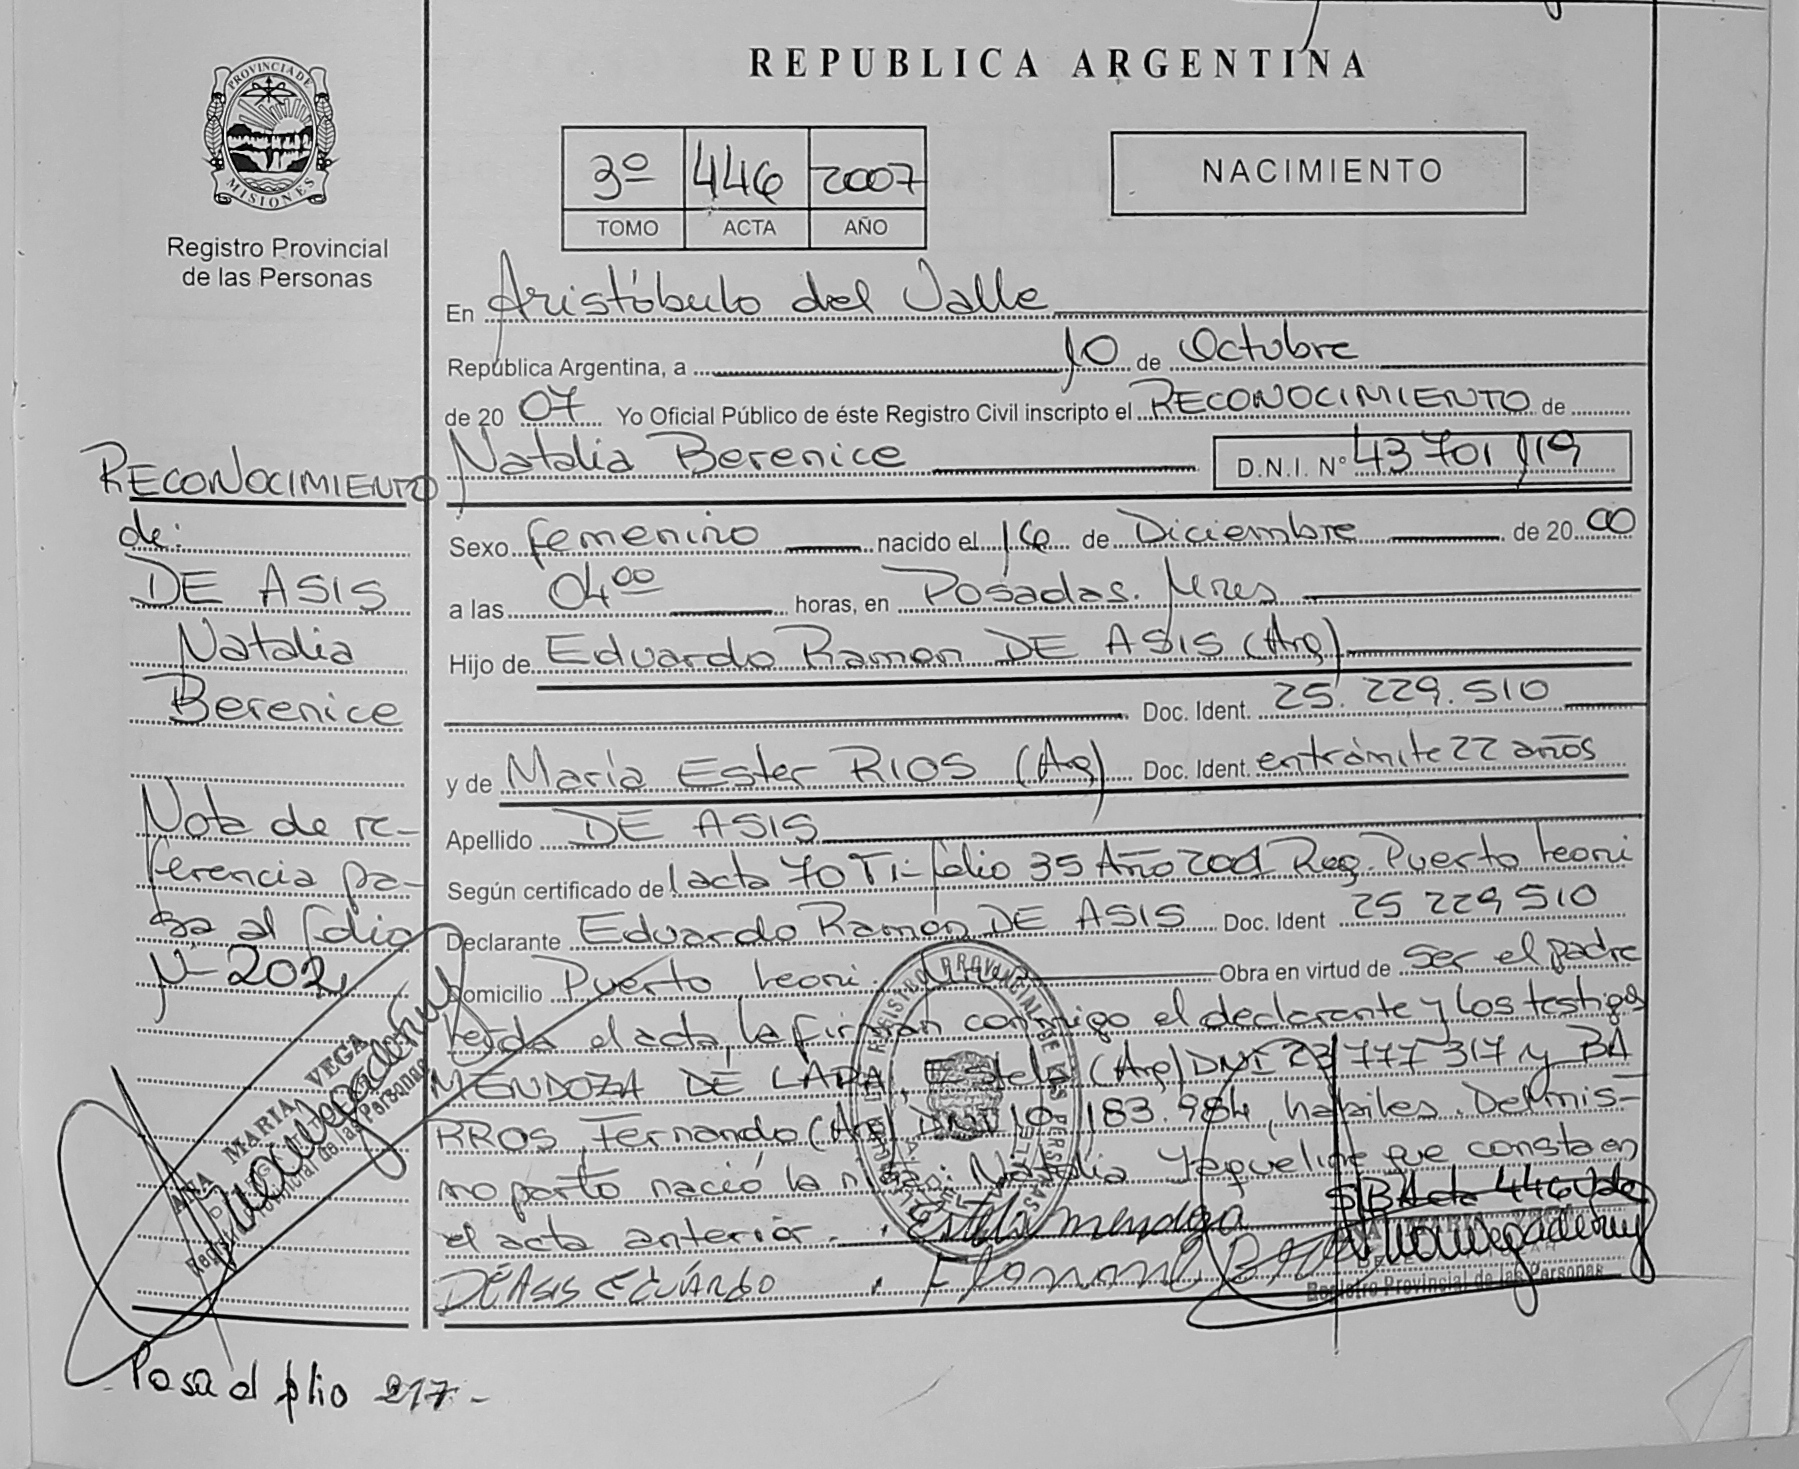 REPUBLICA ARGENTINA
PROVINCIA DE
MISIONES
Registro Provincial
de las Personas
3º 446 2007
TOMO ACTA AÑO
NACIMIENTO
En Aristóbulo del Valle
República Argentina, a 10 de Octubre
de 2007 Yo Oficial Público de éste Registro Civil inscripto el RECONOCIMIENTO de
Natalia Berenice D.N.I. Nº 43 701 119
Sexo femenino nacido el 16 de Diciembre de 2000
a las 04 00 horas, en Posadas. Mnes
Hijo de Eduardo Ramon DE ASIS (Arg)
Doc. Ident. 25.229.510
y de María Ester RIOS (Arg) Doc. Ident. entrámite 22 años
Apellido DE ASIS
Según certificado de acta 70 Ti- folio 35 Año 2001 Reg. Puerto Leoni
Declarante Eduardo Ramon DE ASIS Doc. Ident 25 229 510
Domicilio Puerto Leoni. Obra en virtud de ser el padre
Leída el acta, la firman conmigo el declarante y los testigos
MENDOZA DE LARA, Estela (Arg) DNI 23 777 317 y BA
RROS, Fernando (Arg) DNI 10.183.984, habiles. Del mis-
mo parto nació la niña: Natalia Yaqueline que consta en
el acta anterior. S/B Acta 446 Vale
Estela mendoza
DE ASIS EDUARDO
Registro Provincial de las Personas
RECONOCIMIENTO
de:
DE ASIS
Natalia
Berenice
Nota de re-
ferencia pa-
sa al folio
Nº 202
ANA MARIA VEGA
Registro Provincial de las Personas
Pasa al folio 217-